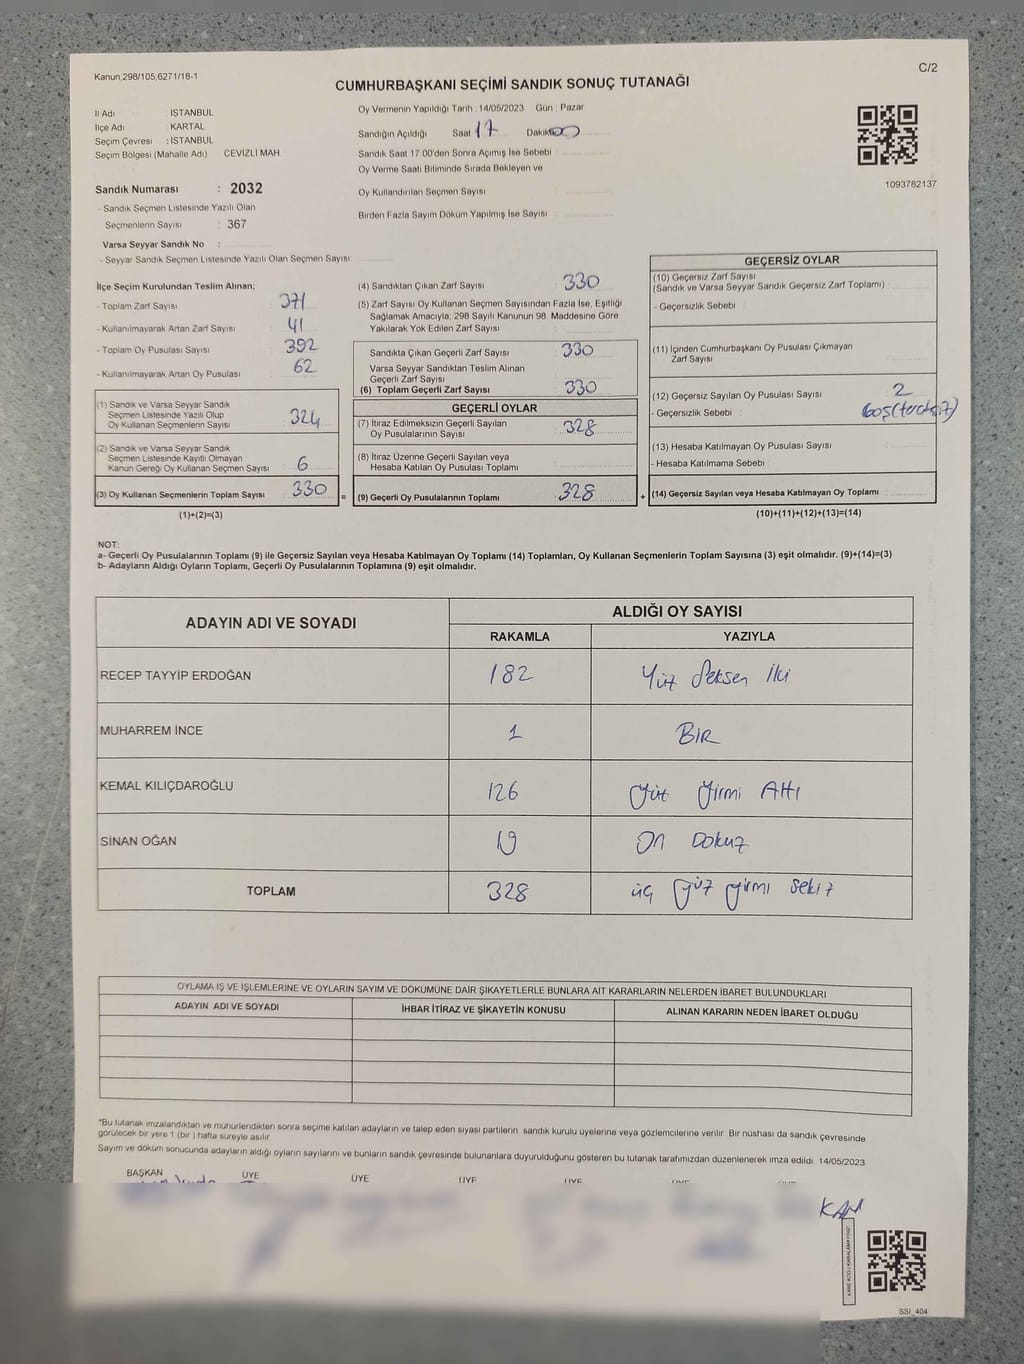 Kanun:298/105,6271/18-1
C/2
CUMHURBAŞKANI SEÇİMİ SANDIK SONUÇ TUTANAĞI
İl Adı İSTANBUL
İlçe Adı : KARTAL
Seçim Çevresi : İSTANBUL
Seçim Bölgesi (Mahalle Adı) CEVİZLİ MAH
Sandık Numarası : 2032
- Sandık Seçmen Listesinde Yazılı Olan
Seçmenlerin Sayısı : 367
Varsa Seyyar Sandık No :
- Seyyar Sandık Seçmen Listesinde Yazılı Olan Seçmen Sayısı
Oy Vermenin Yapıldığı Tarih : 14/05/2023 Gün : Pazar
Sandığın Açıldığı Saat 17 Dakika 00
Sandık Saat 17.00'den Sonra Açımış İse Sebebi
Oy Verme Saati Bitiminde Sırada Bekleyen ve
Oy Kullandırılan Seçmen Sayısı
Birden Fazla Sayım Döküm Yapılmış İse Sayısı
1093782137
İlçe Seçim Kurulundan Teslim Alınan;
- Toplam Zarf Sayısı 371
- Kullanılmayarak Artan Zarf Sayısı 41
- Toplam Oy Pusulası Sayısı 392
- Kullanılmayarak Artan Oy Pusulası 62
(1) Sandık ve Varsa Seyyar Sandık
Seçmen Listesinde Yazılı Olup
Oy Kullanan Seçmenlerin Sayısı 324
(2) Sandık ve Varsa Seyyar Sandık
Seçmen Listesinde Kayıtlı Olmayan
Kanun Gereği Oy Kullanan Seçmen Sayısı 6
(3) Oy Kullanan Seçmenlerin Toplam Sayısı 330 =
(1)+(2)=(3)
(4) Sandıktan Çıkan Zarf Sayısı 330
(5) Zarf Sayısı Oy Kullanan Seçmen Sayısından Fazla İse, Eşitliği
Sağlamak Amacıyla, 298 Sayılı Kanunun 98. Maddesine Göre
Yakılarak Yok Edilen Zarf Sayısı
Sandıkta Çıkan Geçerli Zarf Sayısı 330
Varsa Seyyar Sandıktan Teslim Alınan
Geçerli Zarf Sayısı
(6) Toplam Geçerli Zarf Sayısı 330
GEÇERLİ OYLAR
(7) İtiraz Edilmeksizin Geçerli Sayılan
Oy Pusulalarının Sayısı 328
(8) İtiraz Üzerine Geçerli Sayılan veya
Hesaba Katılan Oy Pusulası Toplamı
(9) Geçerli Oy Pusulalarının Toplamı 328 +
GEÇERSİZ OYLAR
(10) Geçersiz Zarf Sayısı
(Sandık ve Varsa Seyyar Sandık Geçersiz Zarf Toplamı)
- Geçersizlik Sebebi
(11) İçinden Cumhurbaşkanı Oy Pusulası Çıkmayan
Zarf Sayısı
(12) Geçersiz Sayılan Oy Pusulası Sayısı 2
- Geçersizlik Sebebi : boş(tercihsiz)
(13) Hesaba Katılmayan Oy Pusulası Sayısı
- Hesaba Katılmama Sebebi
(14) Geçersiz Sayılan veya Hesaba Katılmayan Oy Toplamı :
(10)+(11)+(12)+(13)=(14)
NOT:
a- Geçerli Oy Pusulalarının Toplamı (9) ile Geçersiz Sayılan veya Hesaba Katılmayan Oy Toplamı (14) Toplamları, Oy Kullanan Seçmenlerin Toplam Sayısına (3) eşit olmalıdır. (9)+(14)=(3)
b- Adayların Aldığı Oyların Toplamı, Geçerli Oy Pusulalarının Toplamına (9) eşit olmalıdır.
ADAYIN ADI VE SOYADI
ALDIĞI OY SAYISI
RAKAMLA YAZIYLA
RECEP TAYYİP ERDOĞAN 182 Yüz Seksen İki
MUHARREM İNCE 1 BİR
KEMAL KILIÇDAROĞLU 126 Yüz Yirmi Altı
SİNAN OĞAN 19 On Dokuz
TOPLAM 328 üç yüz yirmi sekiz
OYLAMA İŞ VE İŞLEMLERİNE VE OYLARIN SAYIM VE DÖKÜMÜNE DAİR ŞİKAYETLERLE BUNLARA AİT KARARLARIN NELERDEN İBARET BULUNDUKLARI
ADAYIN ADI VE SOYADI İHBAR İTİRAZ VE ŞİKAYETİN KONUSU ALINAN KARARIN NEDEN İBARET OLDUĞU
*Bu tutanak imzalandıktan ve mühürlendikten sonra seçime katılan adayların ve talep eden siyasi partilerin sandık kurulu üyelerine veya gözlemcilerine verilir. Bir nüshası da sandık çevresinde
görülecek bir yere 1 (bir ) hafta süreyle asılır.
Sayım ve döküm sonucunda adayların aldığı oyların sayılarını ve bunların sandık çevresinde bulunanlara duyurulduğunu gösteren bu tutanak tarafımızdan düzenlenerek imza edildi. 14/05/2023
BAŞKAN ÜYE ÜYE ÜYE ÜYE
KARE KODU KARALAMAYINIZ!
SSI_404